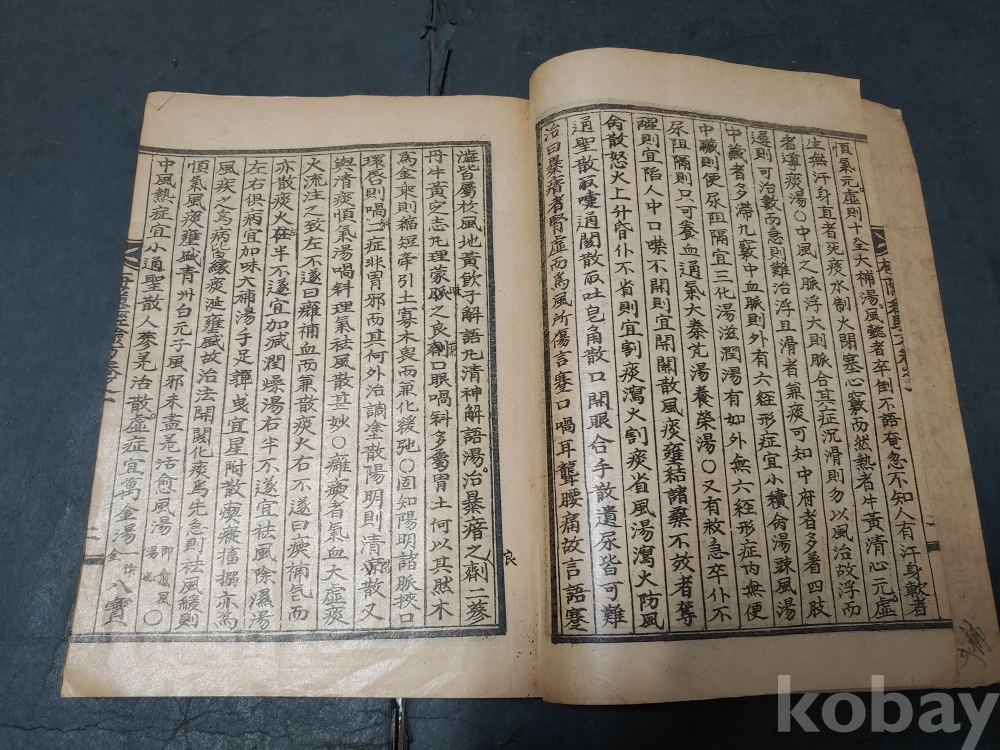 順氣元虛則十全大補湯風懿者卒倒不語奄忽不知人有汗身軟者
生無汗身直者死痰水制火閉塞心竅而然熱者牛黃清心元虛
者導痰湯○中風之脈浮大則脈合其症沉滑則勿以風治故浮而
遲則可治數而急則難治浮且滑者兼痰可知中府者多着四肢
中藏者多滯九竅中血脈則外有六経形症宜小續命湯疎風湯
中臟則便尿阻隔宜三化湯滋潤湯有如外無六経形症內無便
尿阻隔則只可養血通氣大秦艽湯養榮湯○又有救急卒仆不
醒則宜陷人中口噤不開則宜開關散風痰壅結諸藥不效者奪
命散怒火上升昏仆不省則宜割痰瀉火割痰省風湯瀉火防風
通聖散取嚏通關散取吐皂角散口開眼合手散遺尿皆可難
治曰暴瘖者腎虛而爲風所傷言蹇口喎耳聾腰痛故言語蹇
澁皆屬於風地黃飲子解語丸清神解語湯治暴瘖之劑二蔘
丹牛黃定志丸理蒙脈之良劑口眼喎斜多屬胃土何以其然木
爲金乘則縮短牽引土寡木與而兼化緩弛○固知陽明諸脈挾口
環唇則喎二症非胃邪而其何外治調塗散陽明則清散又
與清痰順氣湯喎斜理氣祛風散甚妙○癱瘓者氣血大虛痰
火流注之致左不遂曰癱補血而兼散痰火右不遂曰瘓補氣而
亦散痰火在半不遂宜加減潤燥湯右半不遂宜祛風除濕湯
左右俱病宜加味大補湯手足嚲曳宜星附散瘈瘲搐搦亦爲
風疾之爲病緣痰涎壅盛故治法開關化痰爲先急則祛風緩則
順氣風痰壅盛青州白元子風邪未盡羌活愈風湯即愈風湯也○
中風熱症宜小通聖散人蔘羌活散虛症宜萬金湯一作八寶
良